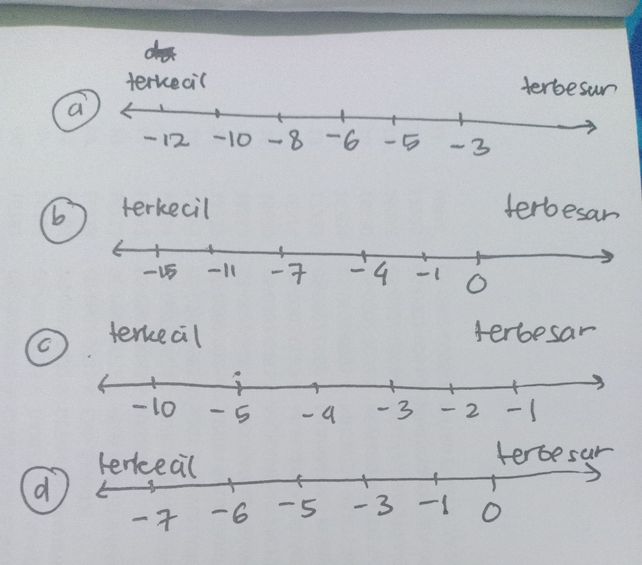 terkecil terbesar
a
-12 -10 -8 -6 -5 -3
b terkecil terbesar
-15 -11 -7 -4 -1 0
c terkecil terbesar
-10 -5 -4 -3 -2 -1
terkecil terbesar
d
-7 -6 -5 -3 -1 0